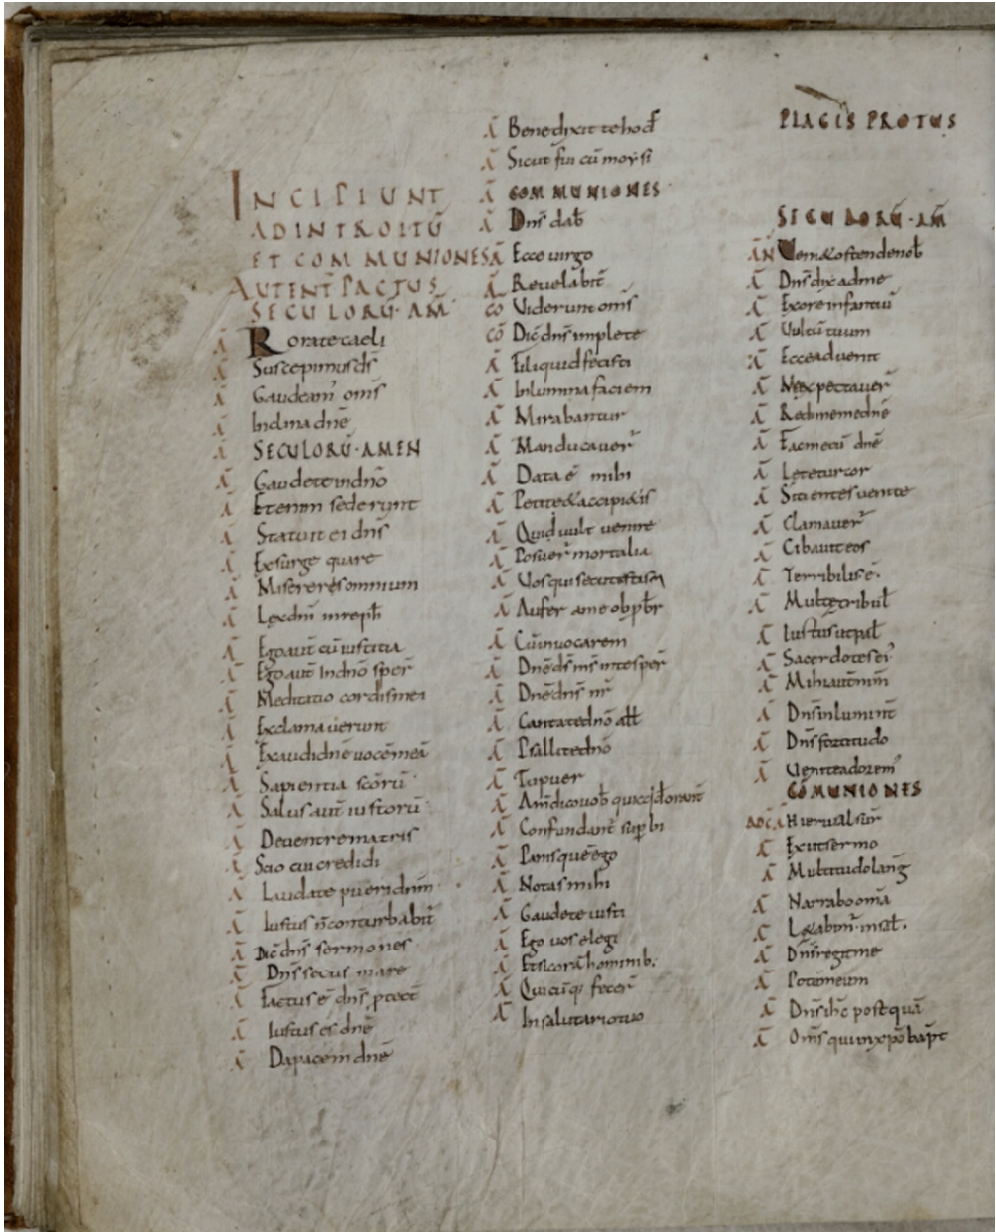 INCIPIUNT
AD INTROITŪ
ET COMMUNIONES
AUTENT̄ P̄ACTUS
SECULORŪ·AM̄
Ā Rorate caeli
Ā Suscepimus ds̄
Ā Gaudeam̄ om̄s
Ā Inclina dnē
Ā SECULORŪ·AMEN
Ā Gaudete in dnō
Ā Etenim sederunt
Ā Statuit ei dn̄s
Ā Exsurge quare
Ā Misereris omnium
Ā Lex dnī inreph̄
Ā Ego aut̄ cū iustitia
Ā Ego aut̄ In dnō sper̄
Ā Meditatio cordis mei
Ā Exclamaverunt
Ā Exaudi dnē vocē meā
Ā Sapientiā sc̄orū
Ā Salus aut̄ iustorū
Ā De ventre matris
Ā Scio cui credidi
Ā Laudate pueri dnm̄
Ā Iustus n̄ conturbabit̄
Ā Dic̄ dn̄s sermones
Ā Dn̄s secus mare
Ā Factus ē dn̄s ptect̄
Ā Iustus es dnē
Ā Da pacem dnē
Ā Benedixit te hod̄
Ā Sicut fui cū moysi
Ā COMMUNIONES
Ā Dn̄s dab̄
Ā Ecce virgo
Ā Revelabit̄
CO Viderunt om̄s
CŌ Dic̄ dn̄s implete
Ā Fili quid fecisti
Ā Inlumina faciem
Ā Mirabantur
Ā Manducaver̄
Ā Data ē mihi
Ā Petite & accipi&is
Ā Quid vult venire
Ā Posuer̄ mortalia
Ā Vos qui secuti estis
Ā Aufer a me obpbr̄
Ā Cū invocarem
Ā Dnē ds̄ ms̄ in te sper̄
Ā Dnē dn̄s nr̄
Ā Cantate dnō all̄
Ā Psallite dnō
Ā Tu puer
Ā Am̄ dico vob̄ quicq̄d orant̄
Ā Confundant̄ supbi
Ā Panis quē ego
Ā Notas mihi
Ā Gaudete iusti
Ā Ego vos elegi
Ā Etsi corā hominib.
Ā Quicūq; fecer̄
Ā In salutari tuo
PLAGIS PROTUS
SECULORŪ·AM̄
ĀN Veni & ostende nob̄
Ā Dn̄s dix ad me
Ā Ex ore infantiū
Ā Vultū tuum
Ā Ecce advenit
Ā Me expectaver̄
Ā Redime me dnē
Ā Fac mecū dnē
Ā Letetur cor
Ā Sitientes venite
Ā Clamaver̄
Ā Cibavit eos
Ā Terribilis ē.
Ā Multe tribul̄
Ā Iustus ut pal̄
Ā Sacerdotes ei'
Ā Mihi aut̄ nim̄
Ā Dn̄s inluminat̄
Ā Dn̄s fortitudo
Ā Venite adorem'
CŌMUNIONES
Hierusal sur̄
Ā Exiit sermo
Ā Multitudo lanḡ
Ā Narrabo omā
Ā L&abim̄ in sal̄.
Ā Dn̄s regit me
Ā Potum eum
Ā Dn̄s ih̄c postquā
Ā Om̄s qui in xpō bapt̄